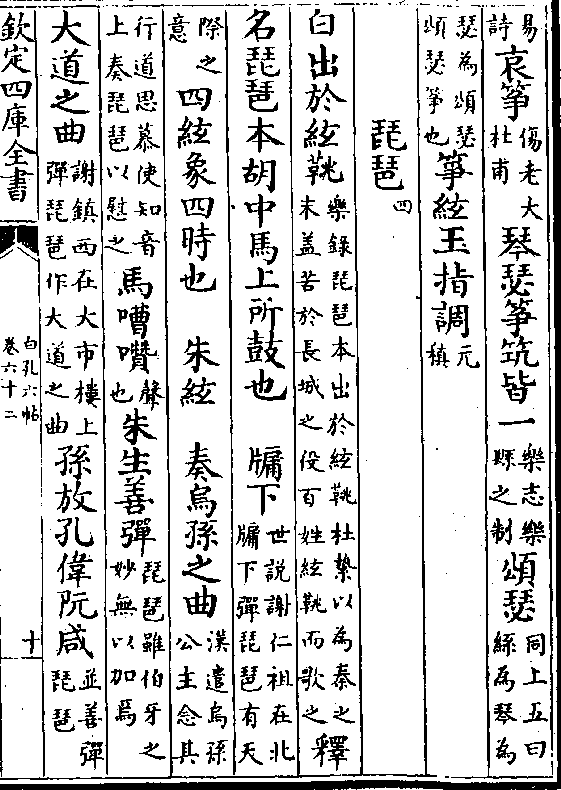 易詩哀箏傷老大杜甫琴瑟箏筑皆一樂志樂縣之制頌瑟同上五曰絲為琴為
瑟為頌瑟頌瑟箏也箏絃玉指調元稹
琵琶四
白出於絃鞉樂錄琵琶本出於絃鞉杜摯以為秦之末盖苦於長城之役百姓絃鞉而歌之釋
名琵琶本胡中馬上所鼓也 牖下世說謝仁祖在北牖下彈琵琶有天
際之意四絃象四時也 朱絃 奏烏孫之曲漢遣烏孫公主念其
行道思慕使知音上奏琵琶以慰之馬嘈囋聲也朱生善彈琵琶雖伯牙之妙無以加焉
大道之曲謝鎮西在大市樓上彈琵琶作大道之曲孫放孔偉阮咸並善彈琵琶
欽定四庫全書
白孔六帖
卷六十二
十